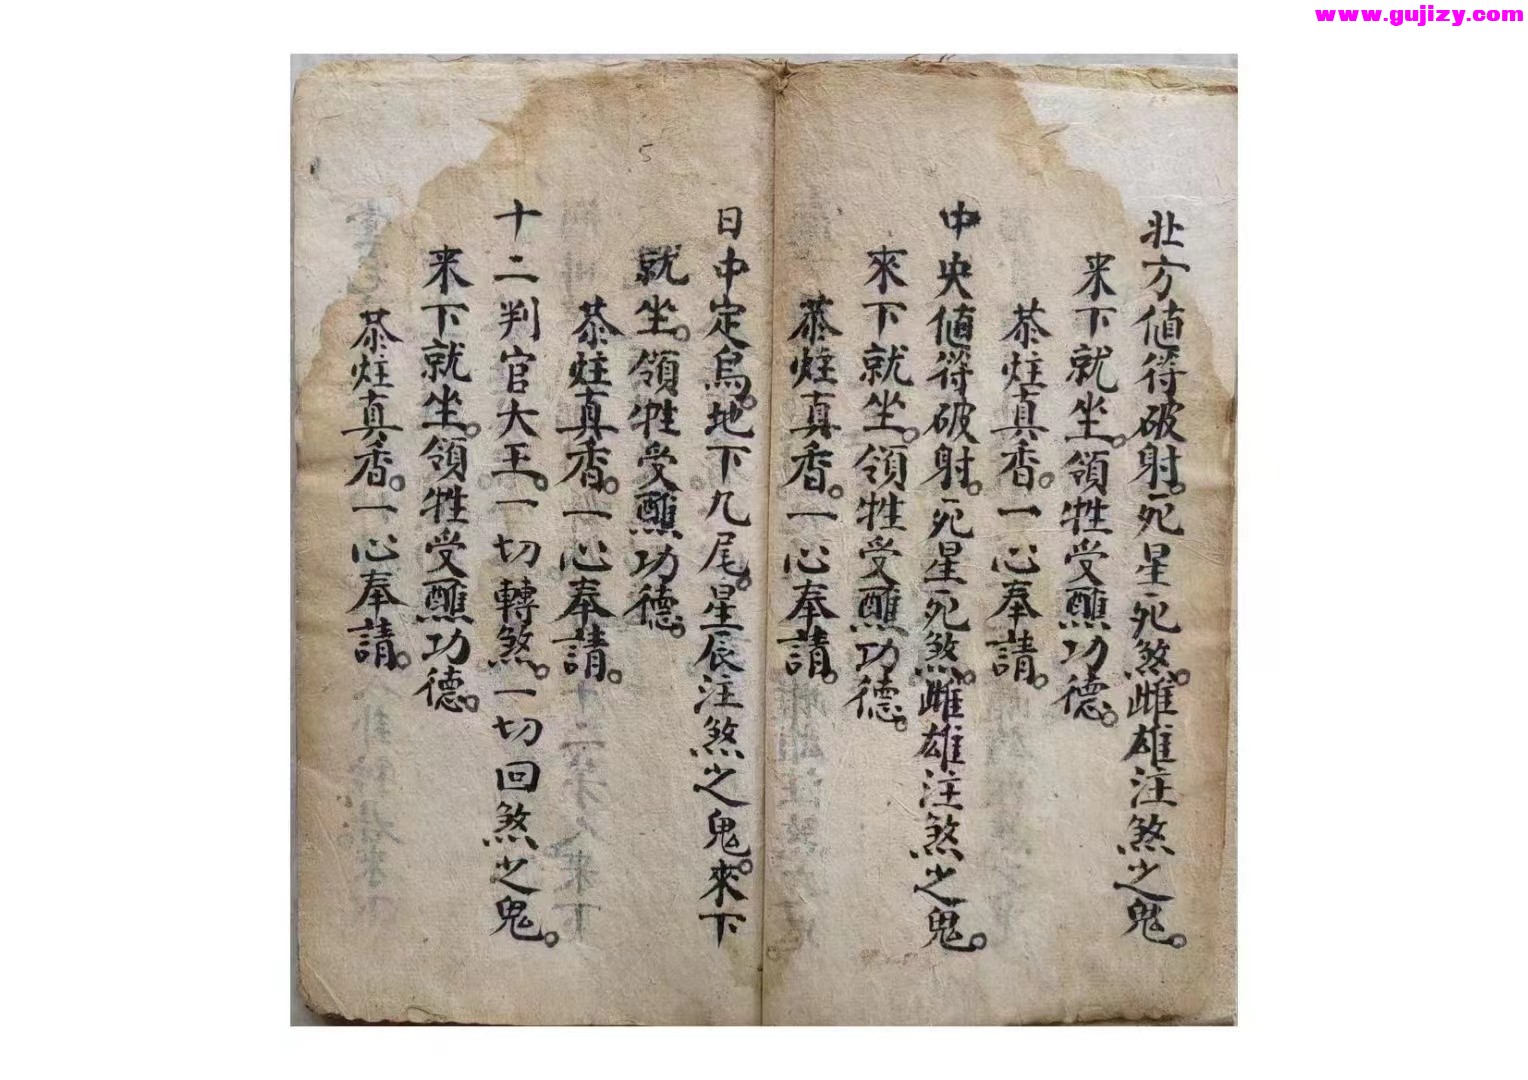 www.gujizy.com
北方值符破射。死星死煞。雌雄注煞之鬼。
来下就坐。領牲受醮功德。
恭炷真香。一心奉請。
中央值符破射。死星死煞。雌雄注煞之鬼。
來下就坐。領牲受醮功德。
恭炷真香。一心奉請。
日中定鳥。地下九尾。星辰注煞之鬼。來下
就坐。領牲受醮功德。
恭炷真香。一心奉請。
十二判官大王。一切轉煞。一切回煞之鬼。
来下就坐。領牲受醮功德。
恭炷真香。一心奉請。